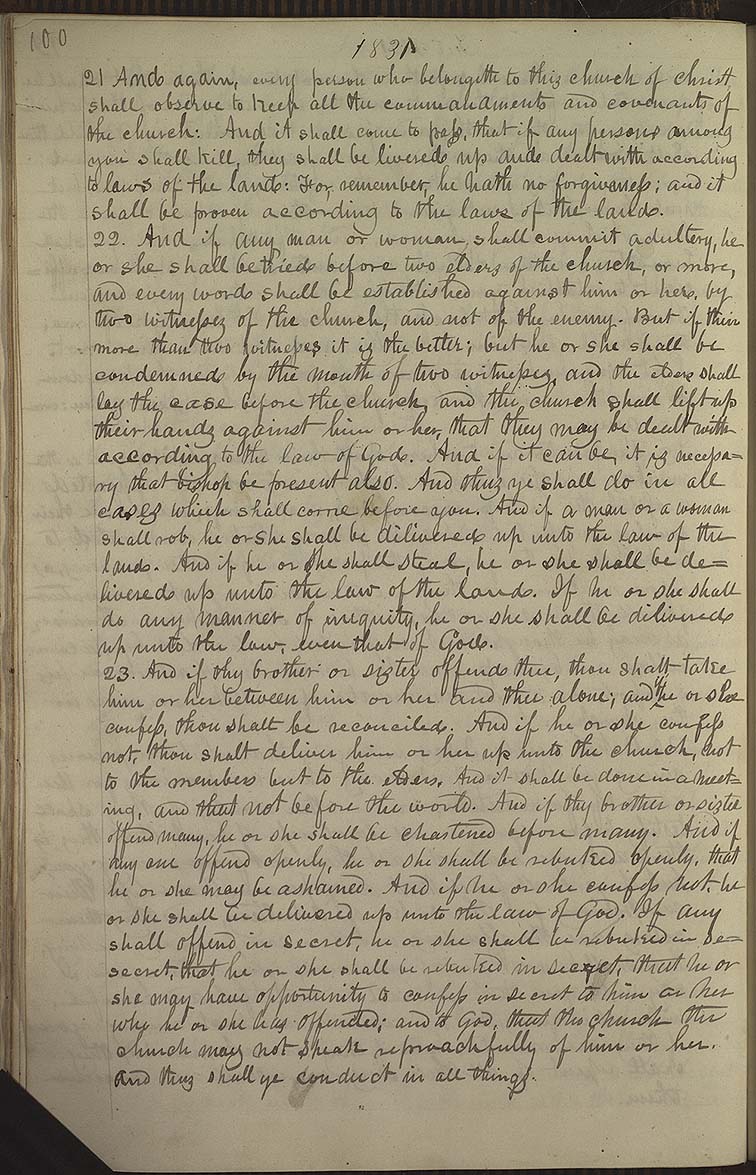 100
1831
21 And again, every person who belongeth to this church of christ
shall observe to keep all the commandments and covenants of
the church: And it shall come to pass, that if any persons among
you shall kill, they shall be livered up and dealt with according
to laws of the land: For, remember, he hath no forgiveness; and it
shall be proven according to the laws of the land.
22. And if any man or woman, shall commit adultery, he
or she shall be tried before two elders of the church, or more,
and every word shall be established against him or her, by
two witnesses of the church, and not of the enemy. But if their
more than two witnesses it is the better; but he or she shall be
condemned by the mouth of two witnesses, and the elders shall
lay the case before the church, and the church shall lift up
their hands against him or her, that they may be dealt with
according to the law of God. And if it can be, it is necessa-
ry that bishop be present also. And thus ye shall do in all
cases which shall come before you. And if a man or a woman
shall rob, he or she shall be delivered up unto the law of the
land. And if he or she shall steal, he or she shall be de=
livered up unto the law of the land. If he or she shall
do any manner of iniquity, he or she shall be delivered
up unto the law, even that of God.
23. And if thy brother or sister offend thee, thou shalt take
him or her between him or her and thee alone; and if he or she
confess, thou shalt be reconciled. And if he or she confess
not, thou shalt deliver him or her up unto the church, not
to the members but to the elders. And it shall be done in a meet=
ing, and that not before the world. And if thy brother or sister
offend many, he or she shall be chastened before many. And if
any one offend openly, he or she shall be rebuked openly, that
he or she may be ashamed. And if he or she confess not, he
or she shall be delivered up unto the law of God. If any
shall offend in secret, he or she shall be rebuked in se=
secret, that he or she shall be rebuked in secret, that he or
she may have opportunity to confess in secret to him or her
who he or she has offended; and to God, that the church the
church may not speak reproachfully of him or her.
And thus shall ye conduct in all things.